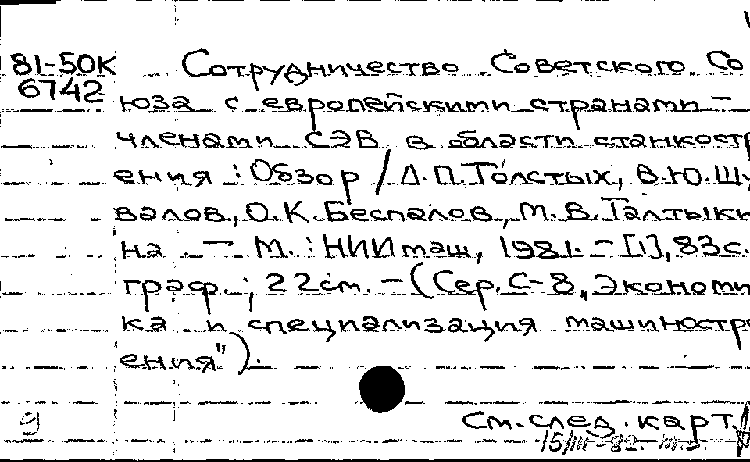 81-50К Сотрудничество Советского Со
6742 юза с европейскими странами –
членами СЭВ в области станкостр
ения : Обзор / Л.П.Толстых, В.Ю.Шу
валов, О.К.Беспалов, М.В.Галтыки
на. – М. : НИИмаш, 1981. – [1], 83с.
граф. ; 22см. – (Сер. С-8, „Экономи
ка и специализация машиностр
ения").
9 См. след. карт.